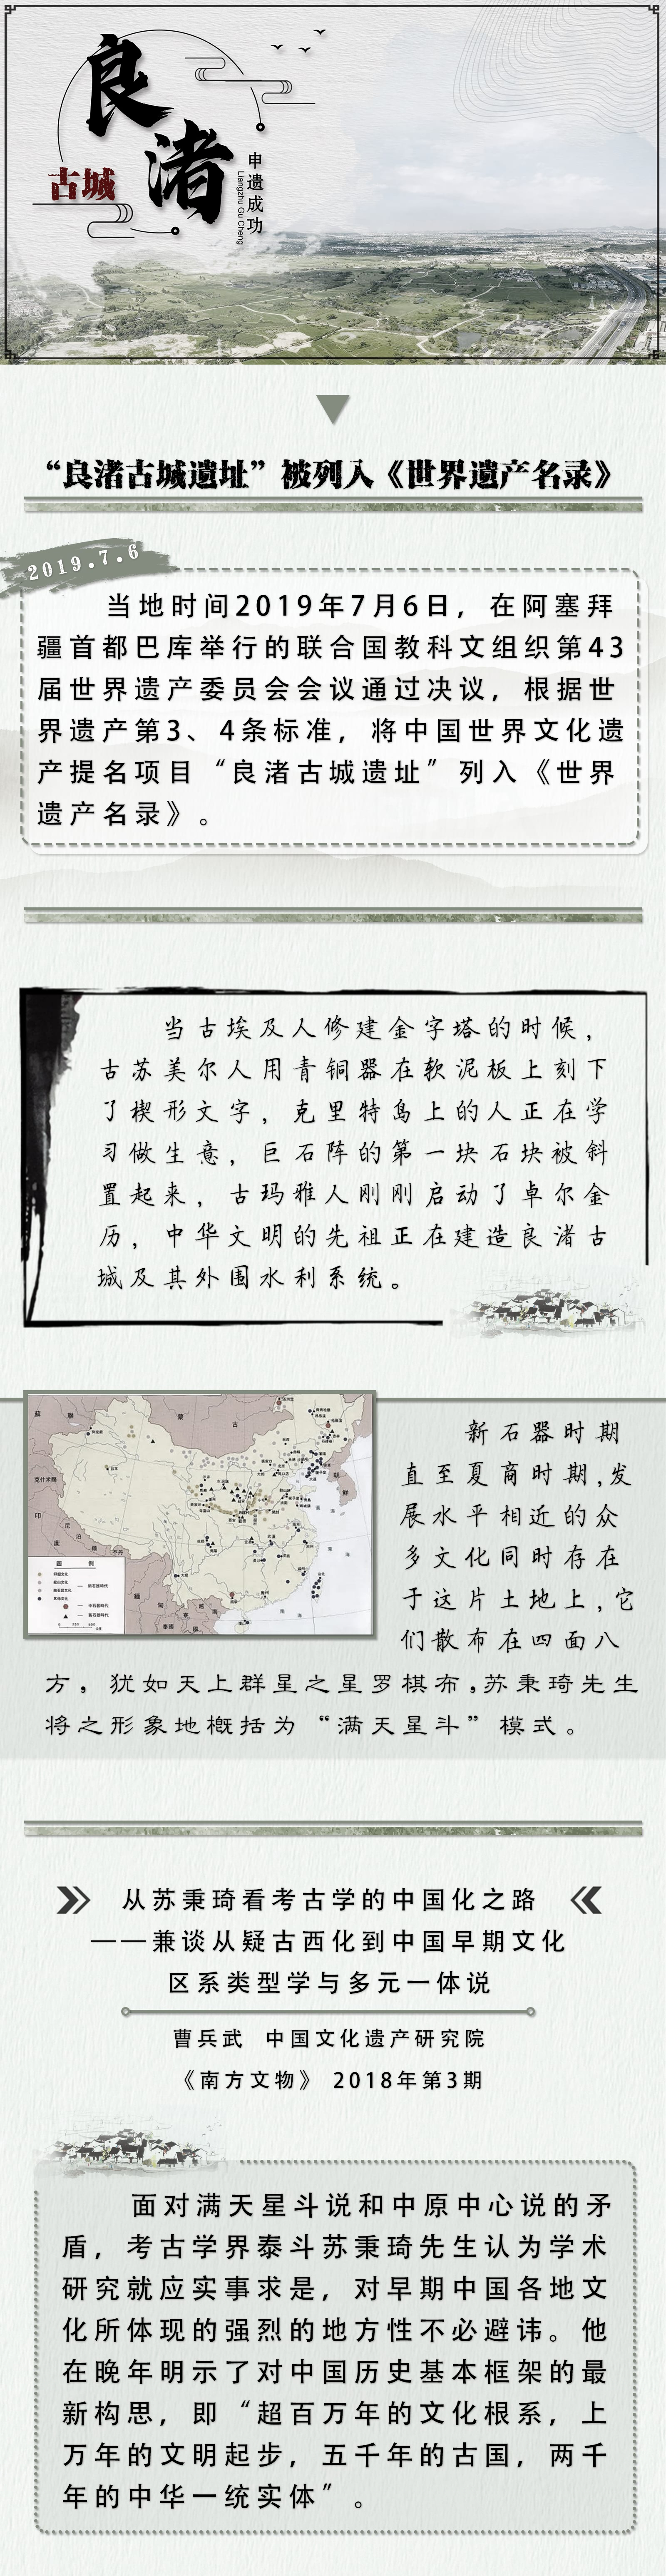 良
渚
古城
申遗成功
Liangzhu Gu Cheng
“良渚古城遗址”被列入《世界遗产名录》
2019.7.6
当地时间2019年7月6日，在阿塞拜
疆首都巴库举行的联合国教科文组织第43
届世界遗产委员会会议通过决议，根据世
界遗产第3、4条标准，将中国世界文化遗
产提名项目“良渚古城遗址”列入《世界
遗产名录》。
当古埃及人修建金字塔的时候，
古苏美尔人用青铜器在软泥板上刻下
了楔形文字，克里特岛上的人正在学
习做生意，巨石阵的第一块石块被斜
置起来，古玛雅人刚刚启动了卓尔金
历，中华文明的先祖正在建造良渚古
城及其外围水利系统。
蒙
古
朝
鲜
印
度
图 例
新石器时期
直至夏商时期,发
展水平相近的众
多文化同时存在
于这片土地上,它
们散布在四面八
方，犹如天上群星之星罗棋布,苏秉琦先生
将之形象地概括为“满天星斗”模式。
从苏秉琦看考古学的中国化之路
——兼谈从疑古西化到中国早期文化
区系类型学与多元一体说
曹兵武 中国文化遗产研究院
《南方文物》 2018年第3期
面对满天星斗说和中原中心说的矛
盾，考古学界泰斗苏秉琦先生认为学术
研究就应实事求是，对早期中国各地文
化所体现的强烈的地方性不必避讳。他
在晚年明示了对中国历史基本框架的最
新构思，即“超百万年的文化根系，上
万年的文明起步，五千年的古国，两千
年的中华一统实体”。